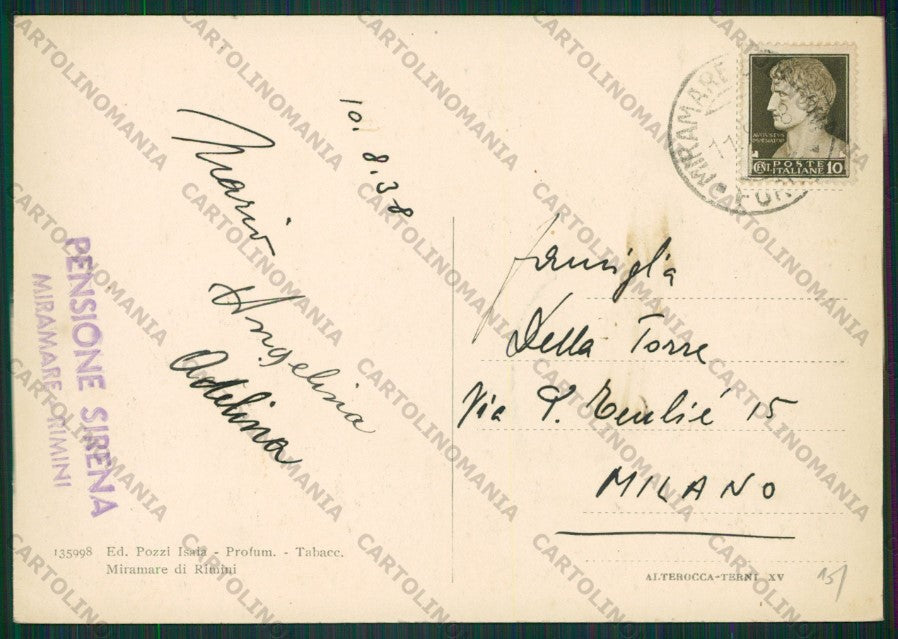 10. 8. 38
Mario
Angelina
Adelina
PENSIONE SIRENA
MIRAMARE-RIMINI
135998 Ed. Pozzi Isaia - Profum. - Tabacc.
Miramare di Rimini
MIRAMARE
AVGVSTVS
CENT. POSTE ITALIANE 10
famiglia
Della Torre
Via P. 15
MILANO
ALTEROCCA-TERNI XV
15/
CARTOLINOMANIA